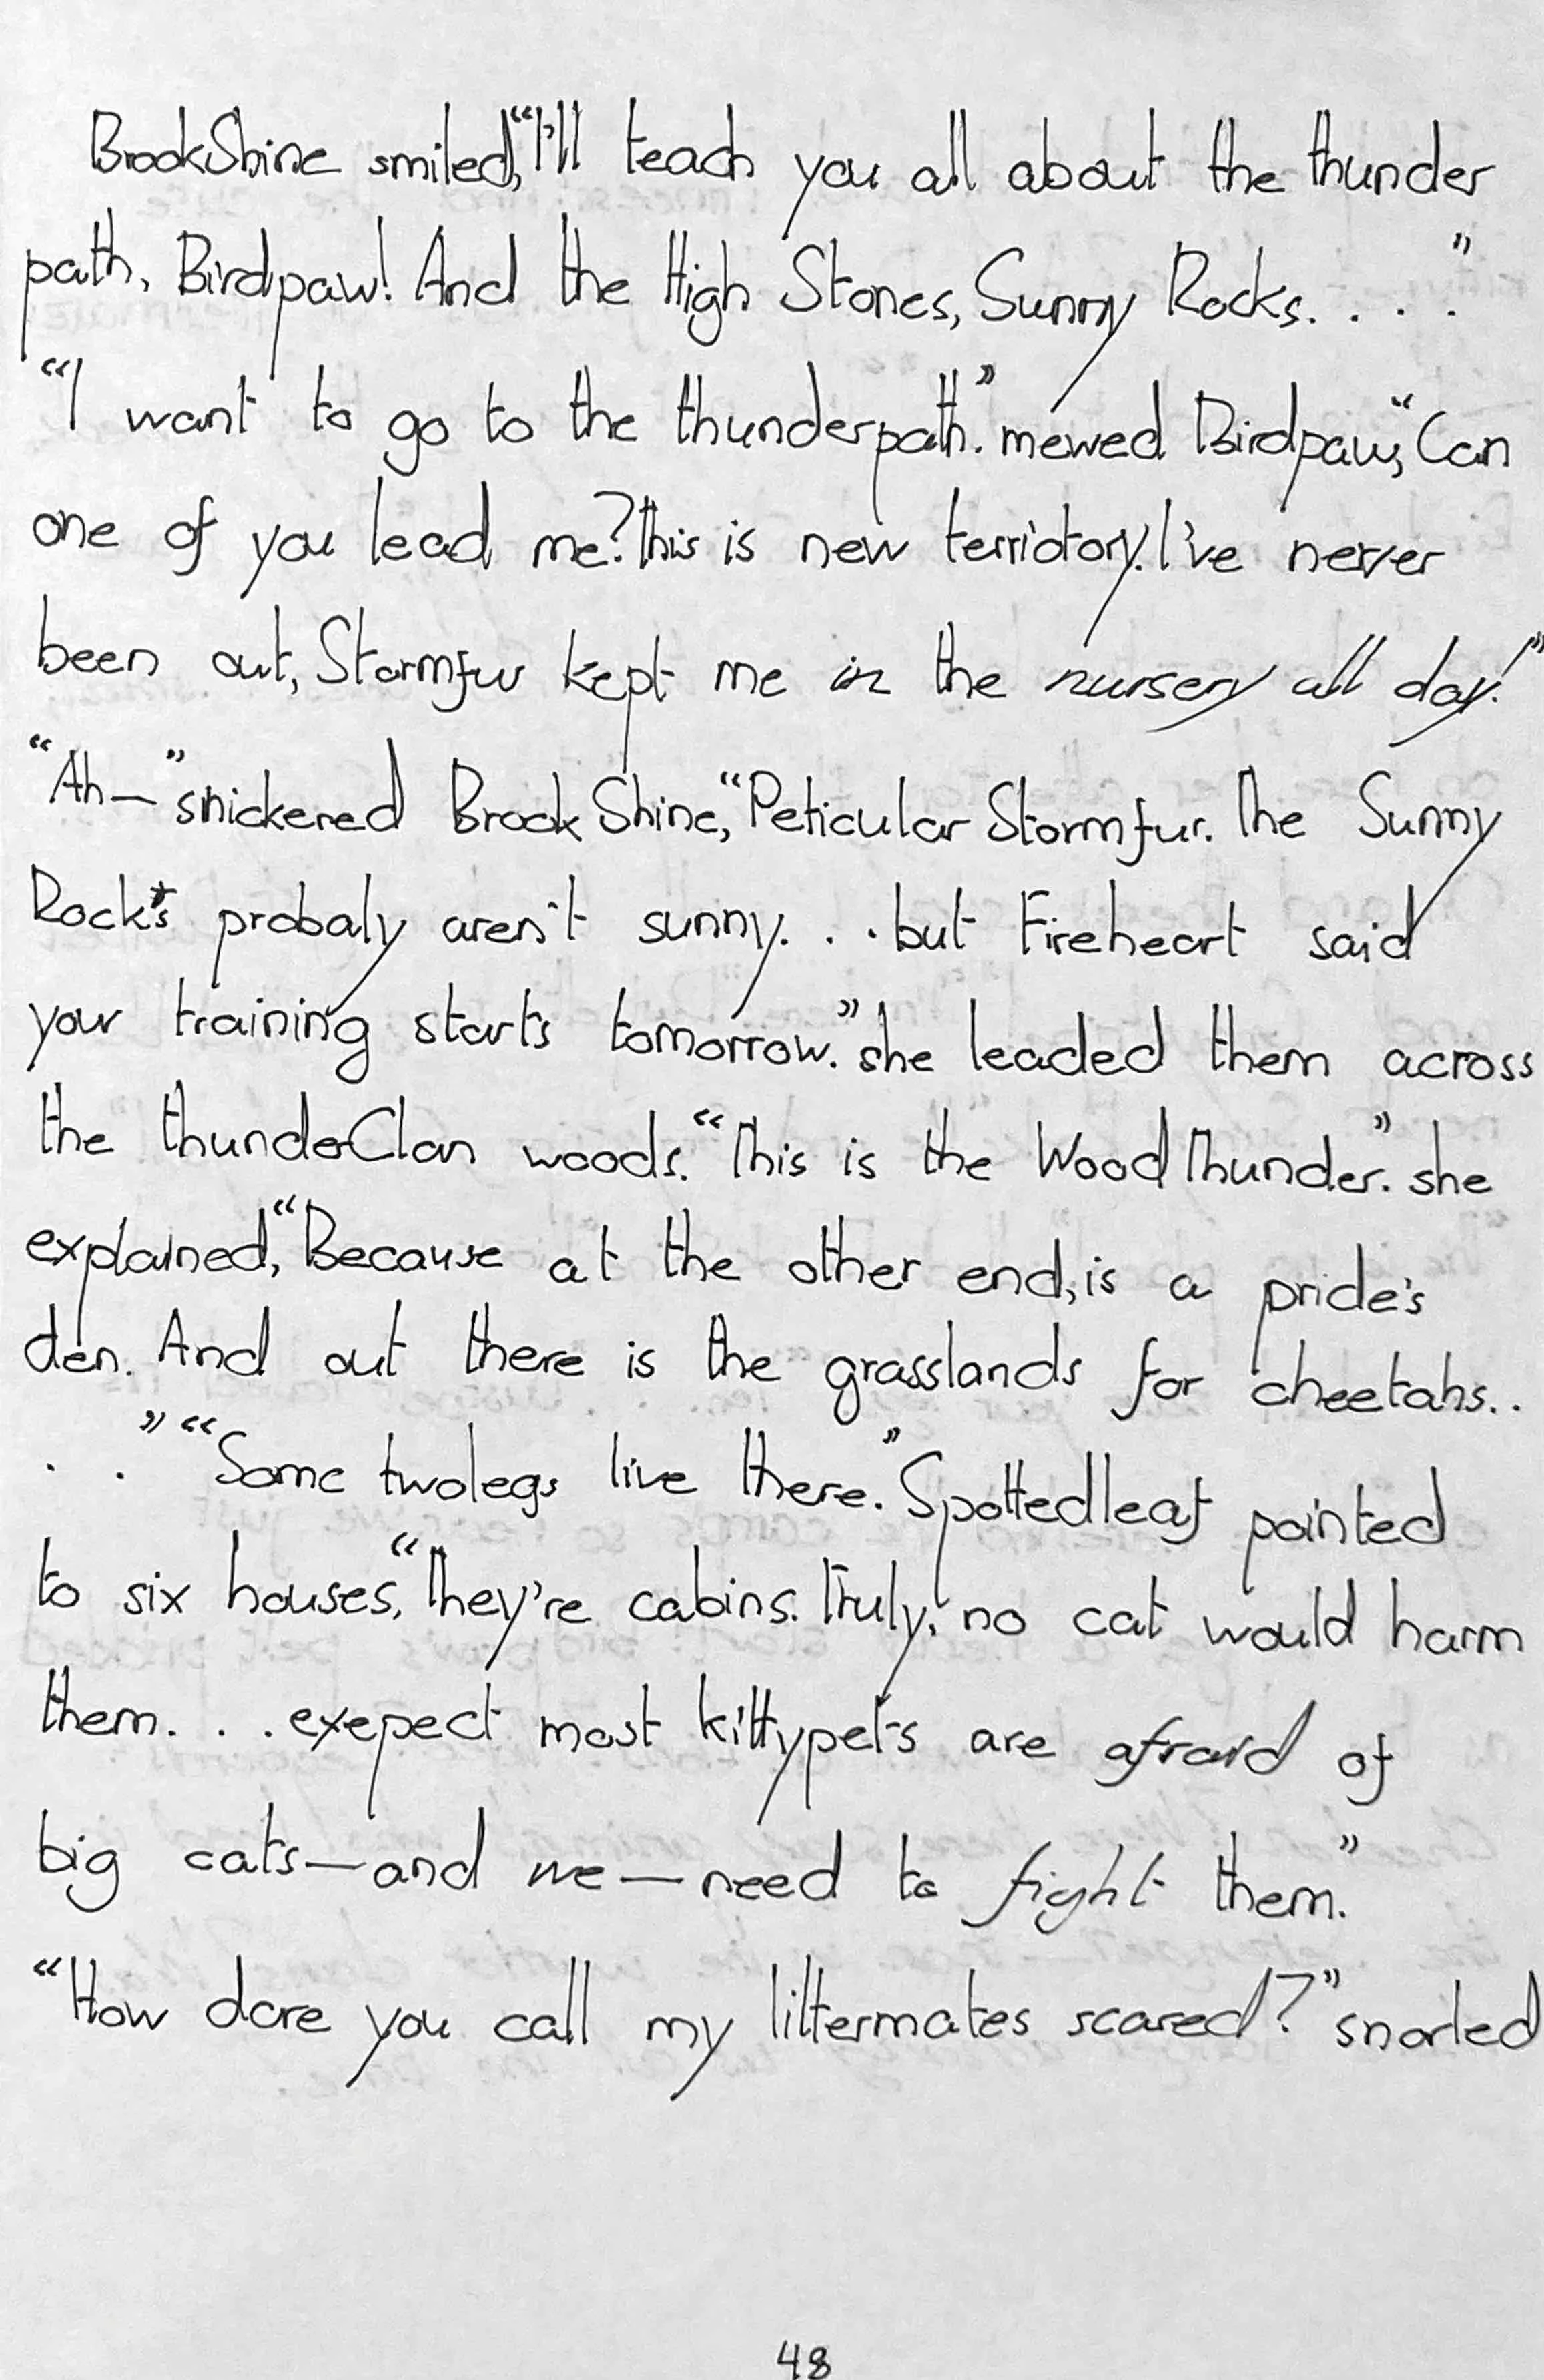 BrookShine smiled, “I'll teach you all about the thunder
path, Birdpaw! And the High Stones, Sunny Rocks. . . .”
“I want to go to the thunderpath.” mewed Birdpaw, “Can
one of you lead me? This is new terriotory. I've never
been out, Stormfur kept me in the nursery all day!”
“Ah—” snickered BrookShine, “Peticular Stormfur. The Sunny
Rocks probaly aren't sunny. . . but Fireheart said
your training starts tomorrow.” she leaded them across
the thunderClan woods. “This is the WoodThunder.” she
explained, “Because at the other end, is a pride's
den. And out there is the grasslands for cheetahs..
. .” “Some twolegs live there.” Spottedleaf pointed
to six houses, “They're cabins. Truly, no cat would harm
them. . . exepect most kittypets are afraid of
big cats—and we—need to fight them.”
“How dare you call my littermates scared?” snarled
48